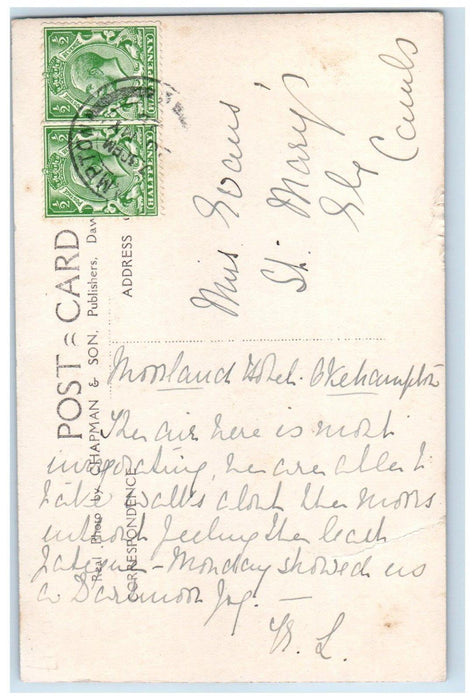 ½ HALFPENNY ½
½ HALFPENNY ½
MPTON
POST CARD
Real Photo by CHAPMAN & SON, Publishers, Daw
CORRESPONDENCE
ADDRESS
Miss Evans
St. Mary's
Ely
Cambs
Moorland Hotel. Okehampton
The air here is most
invigorating, we are able to
take walks about the moors
without feeling the least
fatigue - Monday showed us
a Dartmoor Fog. -
K. L.